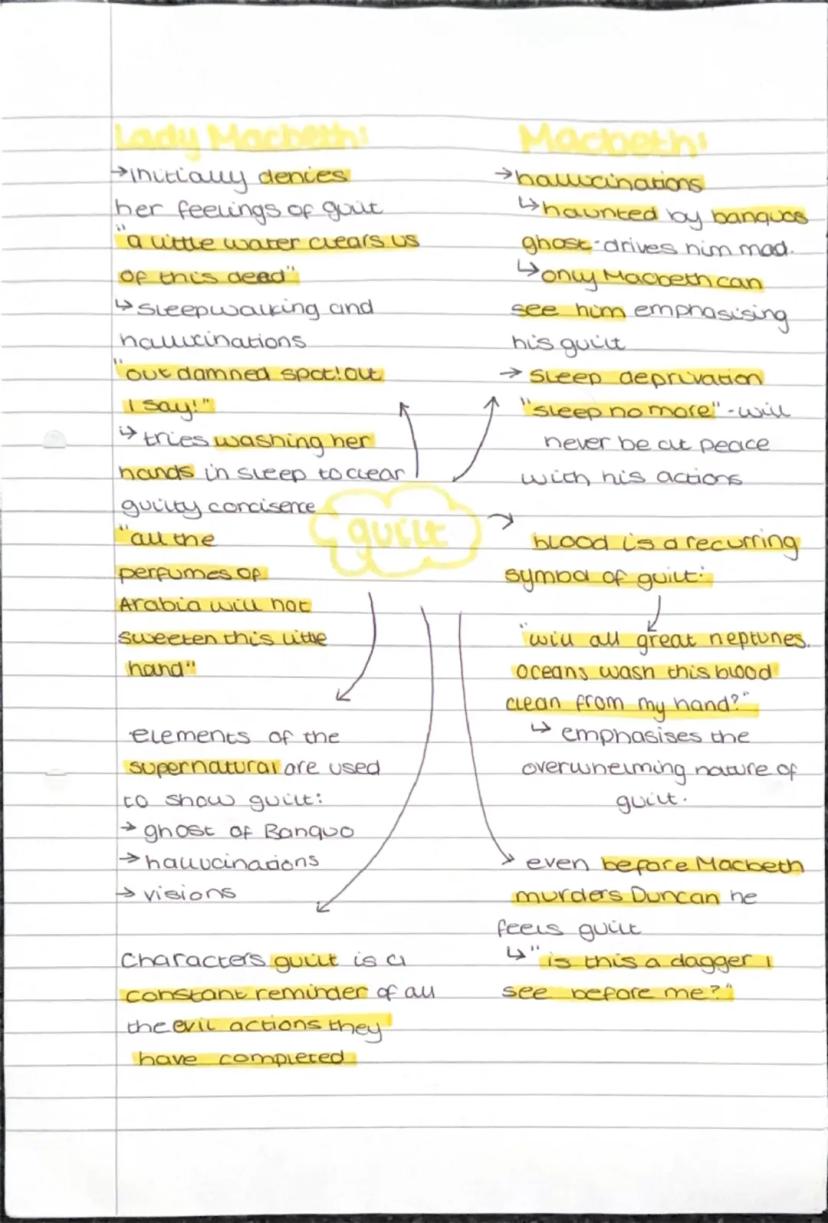 Lady Macbeth:
→initially denies
her feelings of guilt
"a little water clears us
of this deed"
↳sleepwalking and
hallucinations
"out damned spot! out
I say!"
↳ tries washing her
hands in sleep to clear
guilty concisence
"all the
perfumes of
Arabia will not
sweeten this little
hand"
Macbeth:
→hallucinations
↳haunted by banquos
ghost - drives him mad.
↳only Macbeth can
see him emphasising
his guilt
→ sleep deprivation
"sleep no more" - will
never be at peace
with his actions
guilt
blood is a recurring
symbol of guilt:
"will all great neptunes
oceans wash this blood
clean from my hand?"
↳ emphasises the
overwhelming nature of
guilt.
elements of the
supernatural are used
to show guilt:
→ ghost of Banquo
→ hallucinations
→ visions
even before Macbeth
murders Duncan he
feels guilt
↳" is this a dagger I
see before me?"
Characters guilt is a
constant reminder of all
the evil actions they
have completed